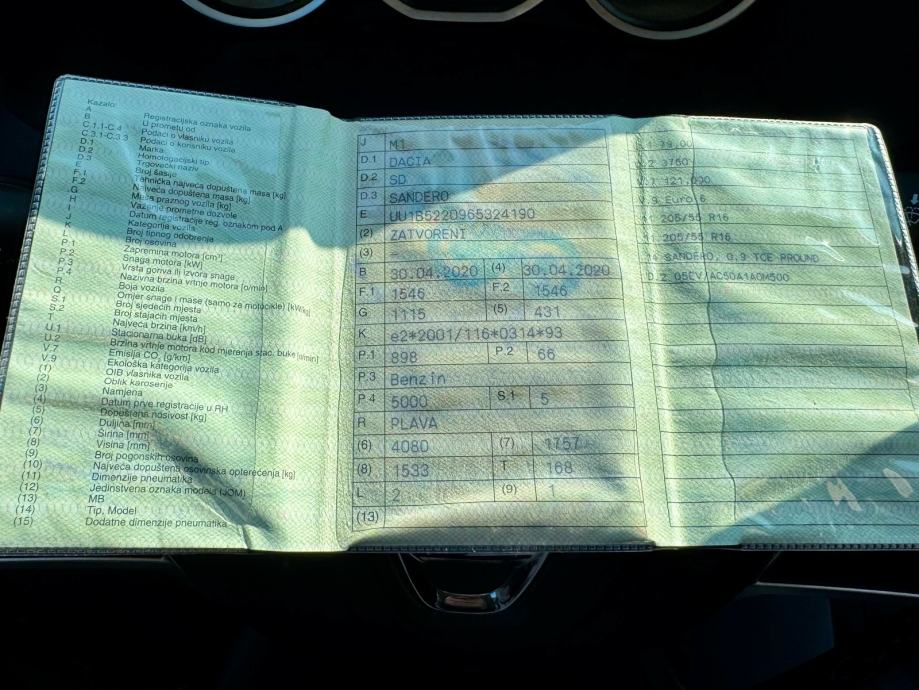 Kazalo:
A Registracijska oznaka vozila
B U prometu od
C.1.1-C.4 Podaci o vlasniku vozila
C.3.1-C.3.3 Podaci o korisniku vozila
D.1 Marka
D.2 Homologacijski tip
D.3 Trgovački naziv
E Broj šasije
F.1 Tehnička najveća dopuštena masa [kg]
F.2 Najveća dopuštena masa [kg]
G Masa praznog vozila [kg]
H Važenje prometne dozvole
I Datum registracije reg. oznakom pod A
J Kategorija vozila
K Broj tipnog odobrenja
L Broj osovina
P.1 Zapremina motora [cm³]
P.2 Snaga motora [kW]
P.3 Vrsta goriva ili izvora snage
P.4 Nazivna brzina vrtnje motora [o/min]
R Boja vozila
Q Omjer snage i mase (samo za motocikle) [kW/kg]
S.1 Broj sjedećih mjesta
S.2 Broj stajaćih mjesta
T Najveća brzina [km/h]
U.1 Stacionarna buka [dB]
U.2 Brzina vrtnje motora kod mjerenja stac. buke [o/min]
V.7 Emisija CO₂ [g/km]
V.9 Ekološka kategorija vozila
(1) OIB vlasnika vozila
(2) Oblik karoserije
(3) Namjena
(4) Datum prve registracije u RH
(5) Dopuštena nosivost [kg]
(6) Duljina [mm]
(7) Širina [mm]
(8) Visina [mm]
(9) Broj pogonskih osovina
(10) Najveća dopuštena osovinska opterećenja [kg]
(11) Dimenzije pneumatika
(12) Jedinstvena oznaka modela (JOM)
(13) MB
(14) Tip, Model
(15) Dodatne dimenzije pneumatika
J M1
D.1 DACIA
D.2 SD
D.3 SANDERO
E UU1B5220965324190
(2) ZATVORENI
(3) -
B 30.04.2020 (4) 30.04.2020
F.1 1546 F.2 1546
G 1115 (5) 431
K e2*2001/116*0314*93
P.1 898 P.2 66
P.3 Benzin
P.4 5000 S.1 5
R PLAVA
(6) 4080 (7) 1757
(8) 1533 T 168
L 2 (9) 1
(13)
79,00
3750
V.7 121,000
V.9 Euro 6
205/55 R16
205/55 R16
SANDERO, 0.9 TCE